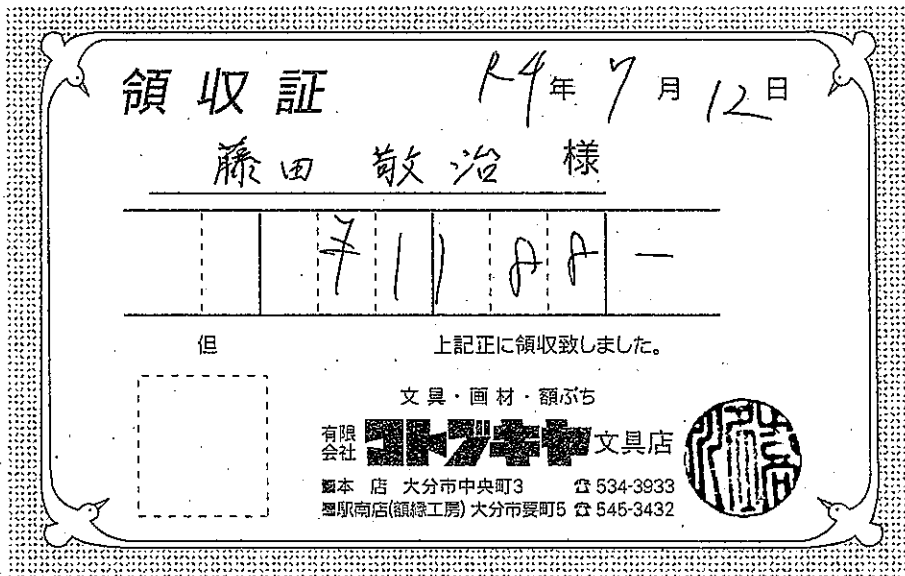 領収証 R4年 7月 12日
藤田 敬治 様
¥1188-
但 上記正に領収致しました。
文具・画材・額ぶち
有限会社 コトブキヤ文具店
本 店 大分市中央町3 ☎534-3933
駅南店(額縁工房) 大分市要町5 ☎545-3432